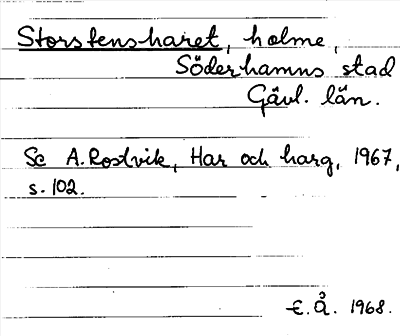 Storstensharet, holme,
Söderhamns stad
Gävl. län.
Se A. Rostvik, Har och harg, 1967,
s. 102.
E. Å. 1968.